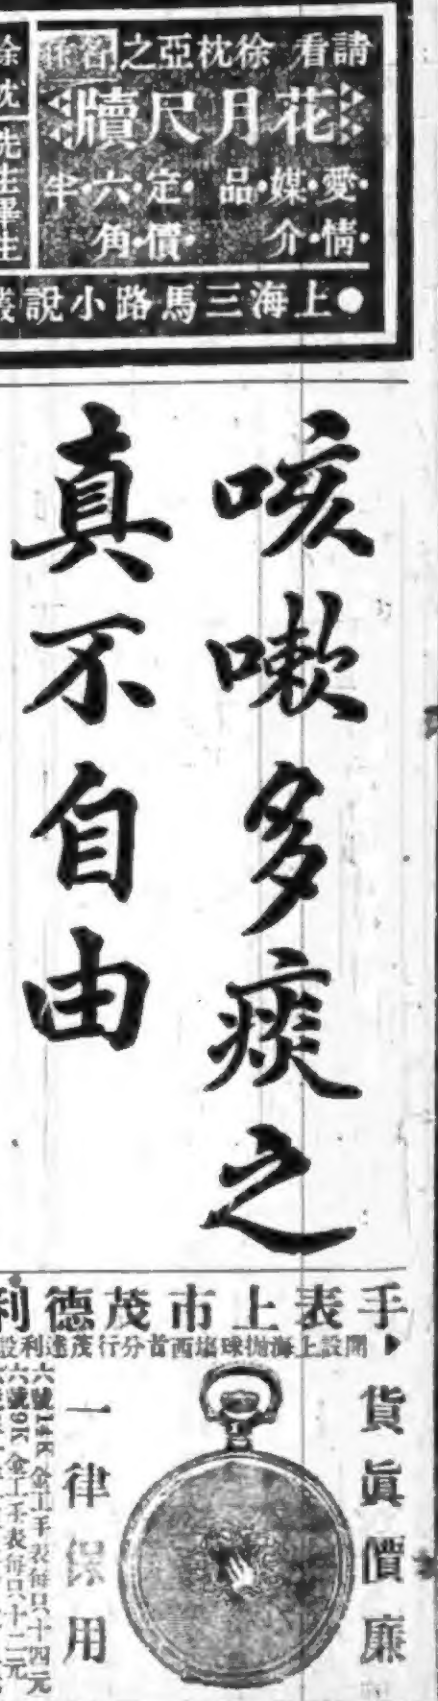 請看徐枕亞之名作
花月尺牘
愛情
媒介
品
定價
六角
半
●上海三馬路小說叢
徐枕亞先生畢生
咳嗽多痰之
真不自由
手表上市茂德利
開設上海拋球塲西首分行茂達利設
貨眞價廉
一律保用
六號14K金工手表每只十四元
六號9K金工手表每只十二元